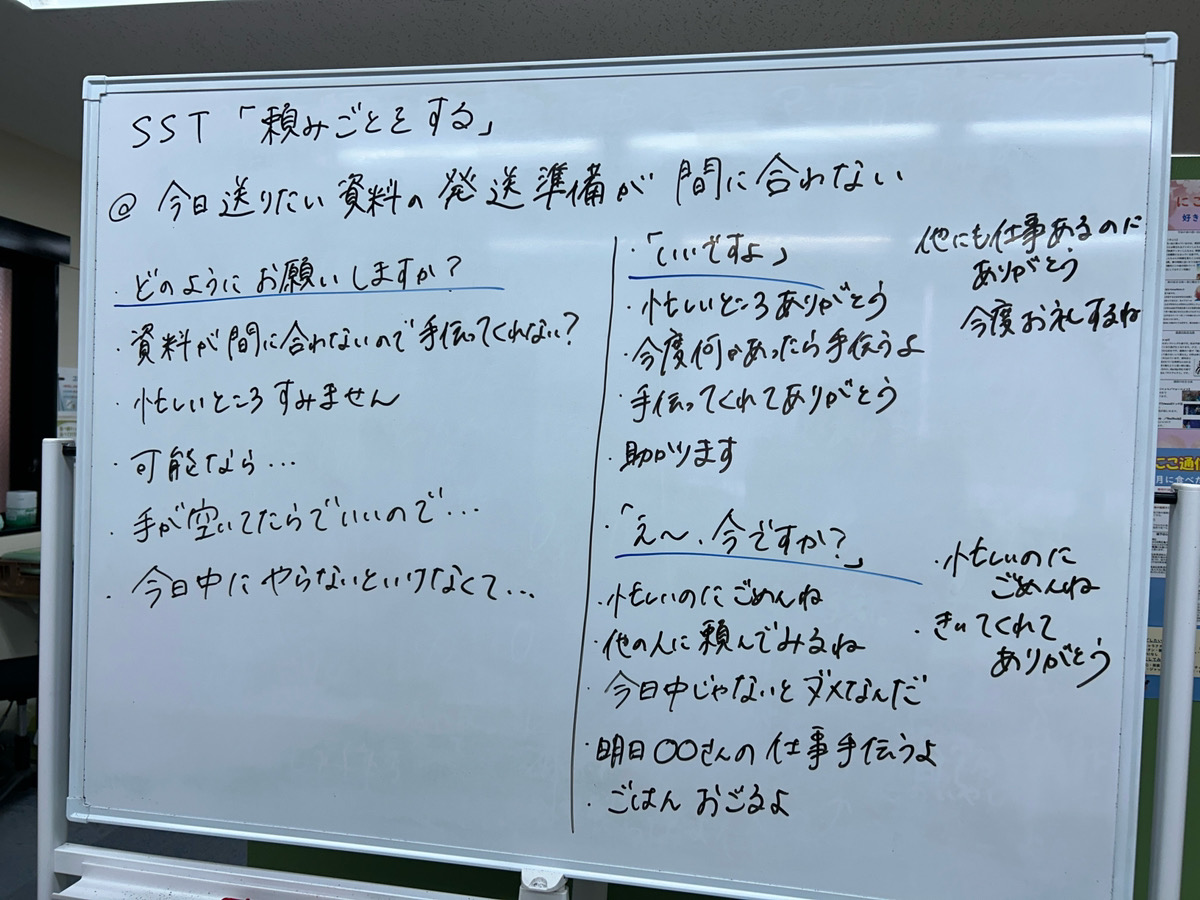 SST「頼みごとをする」
@ 今日送りたい資料の発送準備が間に合わない
・どのようにお願いしますか?
・資料が間に合わないので手伝ってくれない?
・忙しいところすみません
・可能なら…
・手が空いてたらでいいので…
・今日中にやらないといけなくて…
・「いいですよ」
・忙しいところありがとう
・今度何かあったら手伝うよ
・手伝ってくれてありがとう
・助かります
他にも仕事あるのに
ありがとう
今度お礼するね
・「え〜、今ですか?」
・忙しいのにごめんね
・他の人に頼んでみるね
・今日中じゃないとダメなんだ
・明日〇〇さんの仕事手伝うよ
・ごはんおごるよ
・忙しいのに
ごめんね
・きいてくれて
ありがとう
にこ
好き
ここ通信
月に食べた